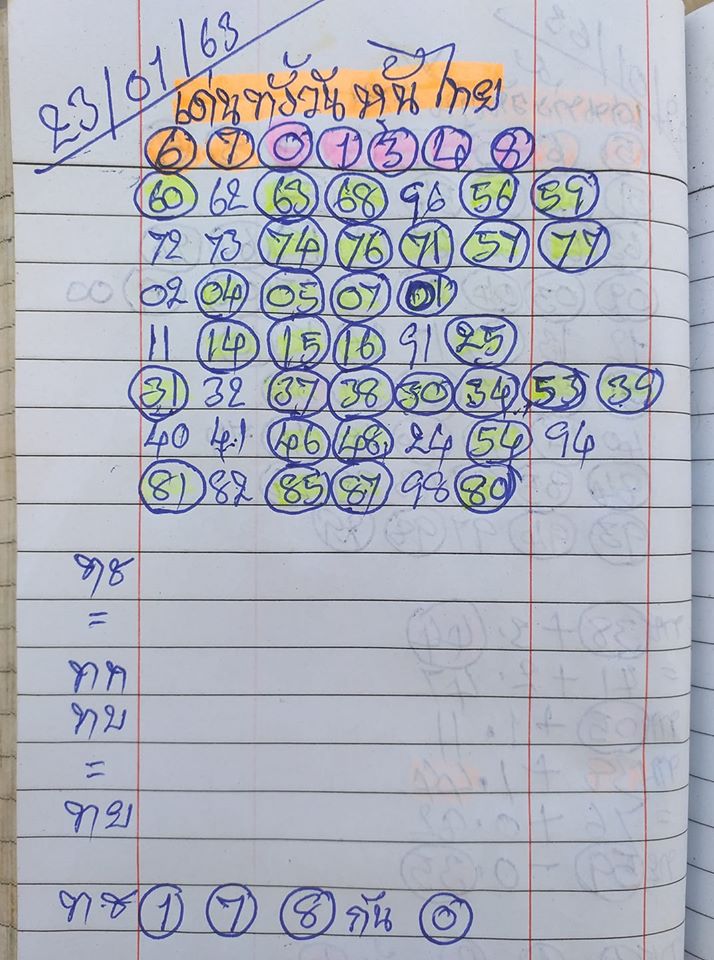 23/01/63
เด่นทั้งวัน หุ้นไทย
6 7 0 1 3 4 8
60 62 63 68 96 56 59
72 73 74 76 71 57 77
02 04 05 07 01
11 14 15 16 91 25
31 32 37 38 30 34 53 39
40 41 46 48 24 54 94
81 82 85 87 98 80
ทช
=
ทท
ทบ
=
ทย
ท.ช 1 7 8 กัน 0